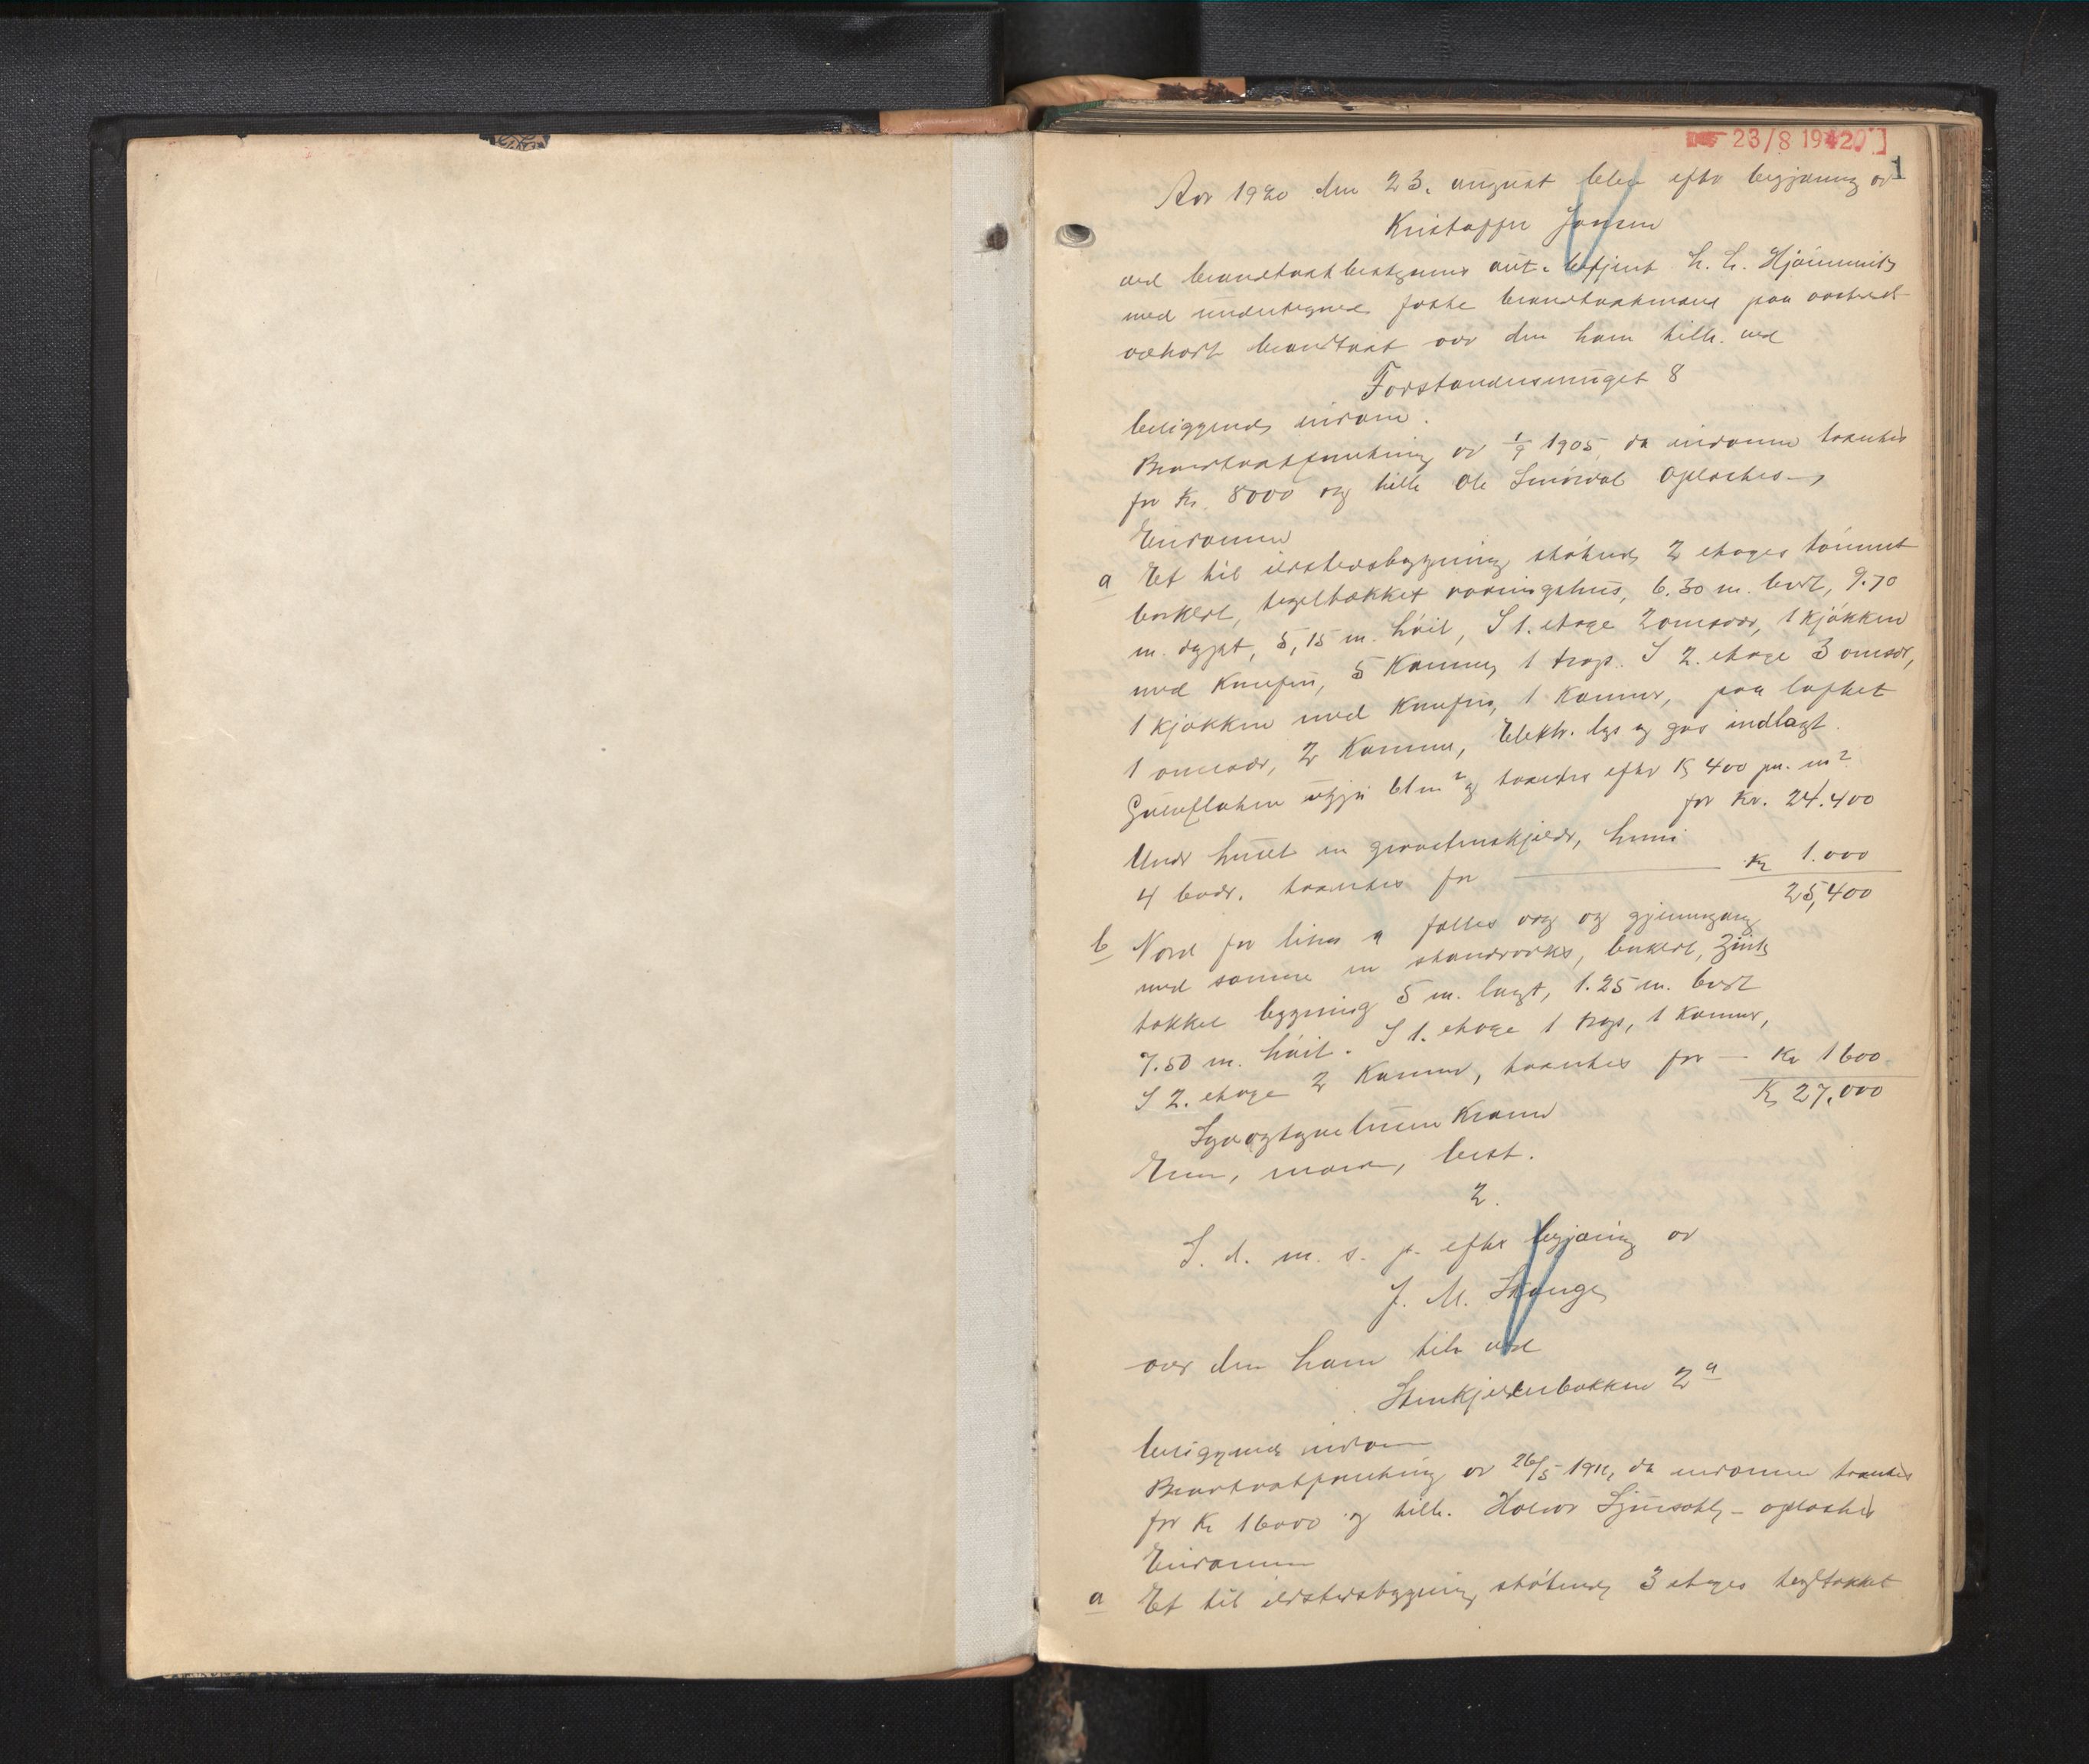 23/8 1920]
1
Aar 1920 den 23. august blev efter begjæring av
Kristoffer Jansen
ved brandtakstbestyrerens aut. betjent
med undertegnede faste brandtakstmænd paa aasted
avholdt brandtakst over den ham tilh. ved
Forstandersmuget 8
beliggende eiendom.
Brandtakstforretning av 1/9 1905, da eiendommen taxertes
for Kr. 8000 og tilh. Ole Smørdal oplæstes.
Eiendommen
a Et til ildstedsbygning støtende 2 etages tømret
bordkl. tegltækket vaaningshus, 6.30 m. bredt, 9.70
m. dypt, 5,15 m. høit, I 1. etage 2 omsvær, 1 kjøkken
med komfur, 5 Kammer, 1 trap. I 2. etage 3 omsvær,
1 kjøkken med komfur, 1 Kammer, paa loftet
1 omsvær, 2 Kammer, Elektr. lys og gas indlagt.
Grundflaten utgjør 61 m² og taxertes efter Kr 400 pr. m²
for Kr. 24.400
Under huset en graastenskjelder, hvori
4 boder. taxertes for Kr 1.000
25,400
b Nord for litra a fælles væg og gjennemgang
med samme en standværks, bordkl., Zink
tækket bygning 5 m. langt, 1.25 m. bredt
7.50 m. høit. I 1. etage 1 trap, 1 Kammer,
I 2. etage 2 Kammer, taxertes for Kr 1600
Kr 27.000
Syvogtyvetusen Kroner
best.
2.
I. d. m. s. p. efter begjæring av
J. M. Stange
over den ham tilh. ved
Stenkjelderbakken 2a
beliggende eiendom
Brandtakstforretning av 26/5 1911, da eiendommen taxertes
for Kr 16000 og tilh. oplæstes
Eiendommen
a Et til ildstedsbygning støtende 3 etages tegltækket